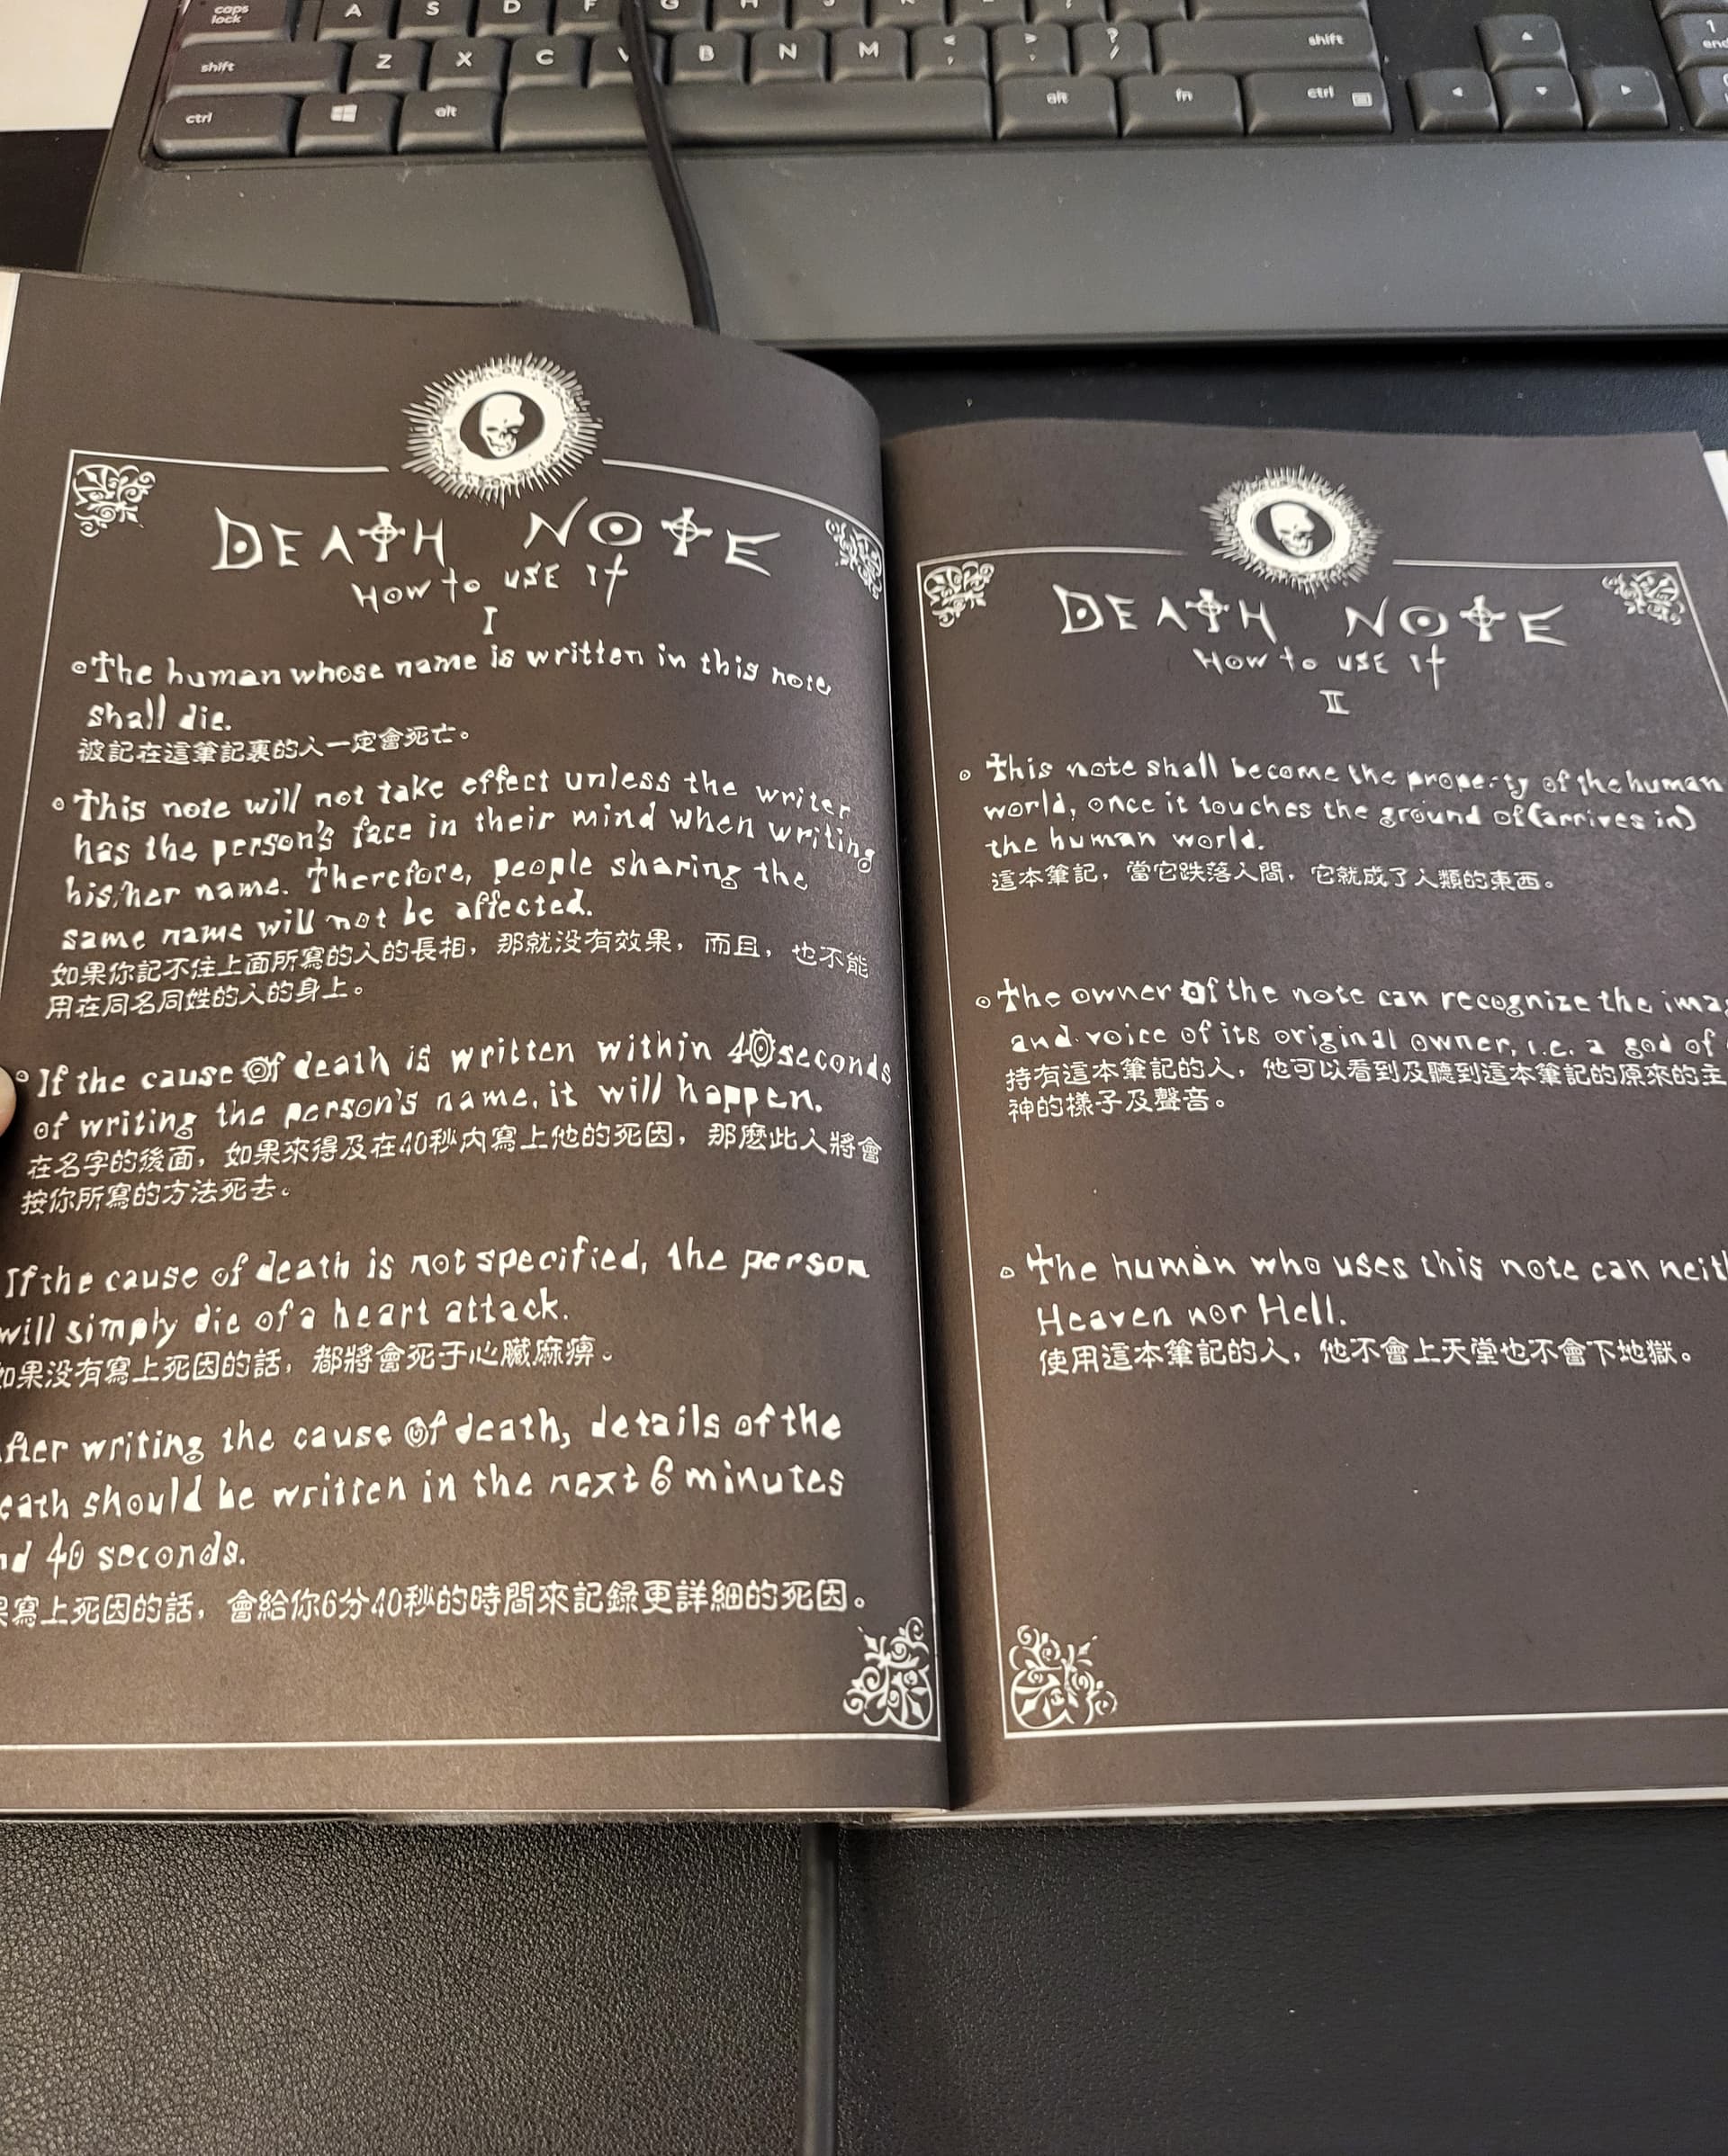 caps lock
A
S
D
F
G
H
shift
Z
X
C
V
B
N
M
<
,
>
.
?
/
shift
ctrl
alt
alt
fn
ctrl
1
end
DEATH NOTE
How to use it
I
The human whose name is written in this note
shall die.
被記在這筆記裏的人一定會死亡。
This note will not take effect unless the writer
has the person's face in their mind when writing
his/her name. Therefore, people sharing the
same name will not be affected.
如果你記不住上面所寫的人的長相，那就没有效果，而且，也不能
用在同名同姓的人的身上。
If the cause of death is written within 40 seconds
of writing the person's name, it will happen.
在名字的後面，如果來得及在40秒内寫上他的死因，那麽此人將會
按你所寫的方法死去。
If the cause of death is not specified, the person
will simply die of a heart attack.
如果没有寫上死因的話，都將會死于心臟麻痹。
fter writing the cause of death, details of the
eath should be written in the next 6 minutes
nd 40 seconds.
果寫上死因的話，會給你6分40秒的時間來記録更詳細的死因。
DEATH NOTE
How to use it
II
This note shall become the property of the human
world, once it touches the ground of (arrives in)
the human world.
這本筆記，當它跌落人間，它就成了人類的東西。
The owner of the note can recognize the ima
and voice of its original owner, i.e. a god of
持有這本筆記的人，他可以看到及聽到這本筆記的原來的主
神的樣子及聲音。
The human who uses this note can neit
Heaven nor Hell.
使用這本筆記的人，他不會上天堂也不會下地獄。